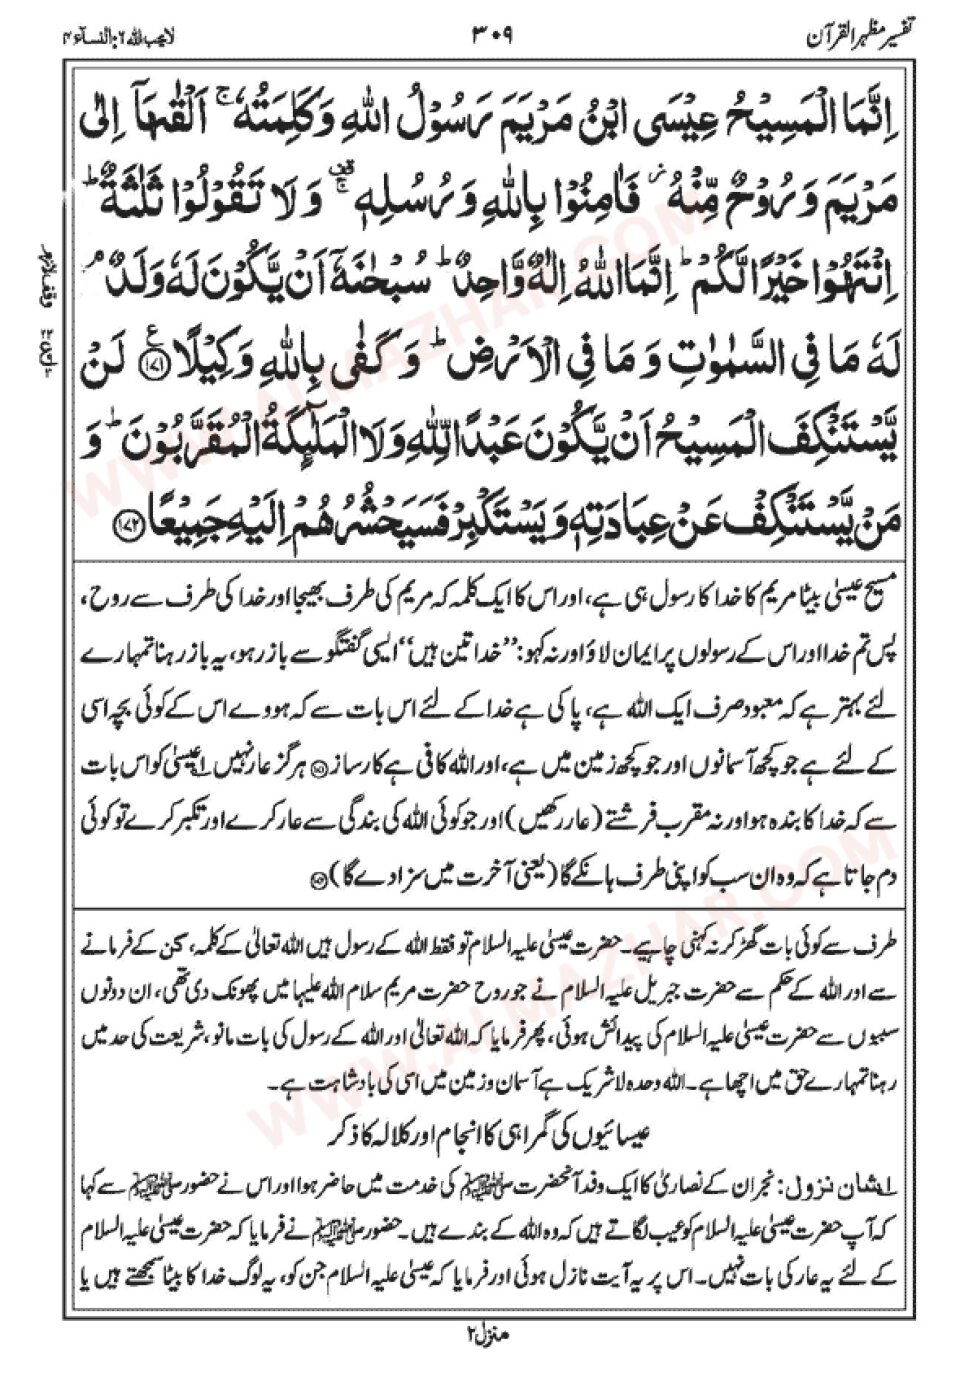 تفسیر مظہر القرآن
۳۰۹
لا یحب اللہ ۶: النسآء ۴
اِنَّمَا الْمَسِیْحُ عِیْسَی ابْنُ مَرْیَمَ رَسُوْلُ اللّٰهِ وَكَلِمَتُهٗ ۚ اَلْقٰىهَاۤ اِلٰی
مَرْیَمَ وَ رُوْحٌ مِّنْهُ ؗ فَاٰمِنُوْا بِاللّٰهِ وَ رُسُلِهٖ ۚ۫ وَ لَا تَقُوْلُوْا ثَلٰثَةٌ ؕ
اِنْتَهُوْا خَیْرًا لَّكُمْ ؕ اِنَّمَا اللّٰهُ اِلٰهٌ وَّاحِدٌ ؕ سُبْحٰنَهٗۤ اَنْ یَّكُوْنَ لَهٗ وَلَدٌ ۘ
لَهٗ مَا فِی السَّمٰوٰتِ وَ مَا فِی الْاَرْضِ ؕ وَ كَفٰی بِاللّٰهِ وَكِیْلًا ﴿۱۷۱﴾ لَنْ
یَّسْتَنْكِفَ الْمَسِیْحُ اَنْ یَّكُوْنَ عَبْدًا لِّلّٰهِ وَلَا الْمَلٰٓىِٕكَةُ الْمُقَرَّبُوْنَ ؕ وَ
مَنْ یَّسْتَنْكِفْ عَنْ عِبَادَتِهٖ وَ یَسْتَكْبِرْ فَسَیَحْشُرُهُمْ اِلَیْهِ جَمِیْعًا ﴿۱۷۲﴾
مسیح عیسیٰ بیٹا مریم کا خدا کا رسول ہی ہے، اور اس کا ایک کلمہ کہ مریم کی طرف بھیجا اور خدا کی طرف سے روح،
پس تم خدا اور اس کے رسولوں پر ایمان لاؤ اور نہ کہو: ’’خدا تین ہیں‘‘ ایسی گفتگو سے باز رہو، یہ باز رہنا تمہارے
لئے بہتر ہے کہ معبود صرف ایک اللہ ہے، پاکی ہے خدا کے لئے اس بات سے کہ ہووے اس کے کوئی بچہ اسی
کے لئے ہے جو کچھ آسمانوں اور جو کچھ زمین میں ہے، اور اللہ کافی ہے کارساز ﴿۱۷۱﴾ ہرگز عار نہیں ۱ عیسیٰ کو اس بات
سے کہ خدا کا بندہ ہو اور نہ مقرب فرشتے (عار رکھیں) اور جو کوئی اللہ کی بندگی سے عار کرے اور تکبر کرے تو کوئی
دم جاتا ہے کہ وہ ان سب کو اپنی طرف ہانکے گا (یعنی آخرت میں سزا دے گا) ﴿۱۷۲﴾
طرف سے کوئی بات گھڑ کر نہ کہنی چاہیے۔ حضرت عیسیٰ علیہ السلام تو فقط اللہ کے رسول ہیں اللہ تعالیٰ کے کلمہ، کن کے فرمانے
سے اور اللہ کے حکم سے حضرت جبریل علیہ السلام نے جو روح حضرت مریم سلام اللہ علیہا میں پھونک دی تھی، ان دونوں
سببوں سے حضرت عیسیٰ علیہ السلام کی پیدائش ہوئی، پھر فرمایا کہ اللہ تعالیٰ اور اللہ کے رسول کی بات مانو، شریعت کی حد میں
رہنا تمہارے حق میں اچھا ہے۔ اللہ وحدہ لا شریک ہے آسمان و زمین میں اسی کی بادشاہت ہے۔
عیسائیوں کی گمراہی کا انجام اور کلالہ کا ذکر
۱ شان نزول: نجران کے نصاریٰ کا ایک وفد آنحضرت ﷺ کی خدمت میں حاضر ہوا اور اس نے حضور ﷺ سے کہا
کہ آپ حضرت عیسیٰ علیہ السلام کو عیب لگاتے ہیں کہ وہ اللہ کے بندے ہیں۔ حضور ﷺ نے فرمایا کہ حضرت عیسیٰ علیہ السلام
کے لئے یہ عار کی بات نہیں۔ اس پر یہ آیت نازل ہوئی اور فرمایا کہ عیسیٰ علیہ السلام جن کو، یہ لوگ خدا کا بیٹا سمجھتے ہیں یا
منزل ۲
WWW.ALMAZHAR.COM
WWW.ALMAZHAR.COM